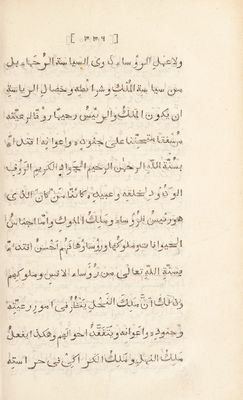 [ ٣٣٦ ]
ولا على الرؤساء ذوى السياسة الرحماء بل
من سياسة الملك وشرائطه وخصال الرياسة
ان يكون الملك والرئيس رحيما رؤفا لرعيته
مشفقا متحننا على جنوده واعوانه اقتداء
بسنة الله الرحمن الرحيم الجواد الكريم الرؤف
الودود لخلقه وعبيده كائنا من كان الذى
هو رئيس الرؤساء وملك الملوك واما اجناس
الحيوانات وملوكها ورؤساؤها فهم احسن اقتداء
بسنة الله تعالى من رؤساء الانس وملوكهم
وذلك ان ملك النحل ينظر فى امور رعيته
وجنوده واعوانه ويتفقد احوالهم وهكذا يفعل
ملك النمل وملك الكراكى فى حراسته